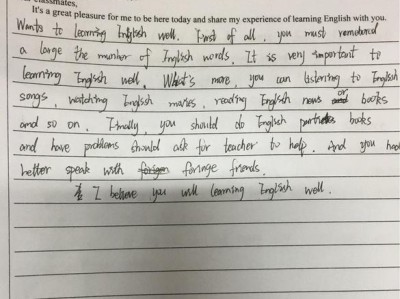 classmates,
It's a great pleasure for me to be here today and share my experience of learning English with you.
Wants to learning English well. First of all, you must remeband
a large the munber of English words. It is very important to
learning English well. What's more, you can listening to English
songs, watching English movies, reading English news or books
and so on. Finally, you should do English books
and have problems should ask for teacher to help. And you had
better speak with foringe friends.
I believe you will learning English well.